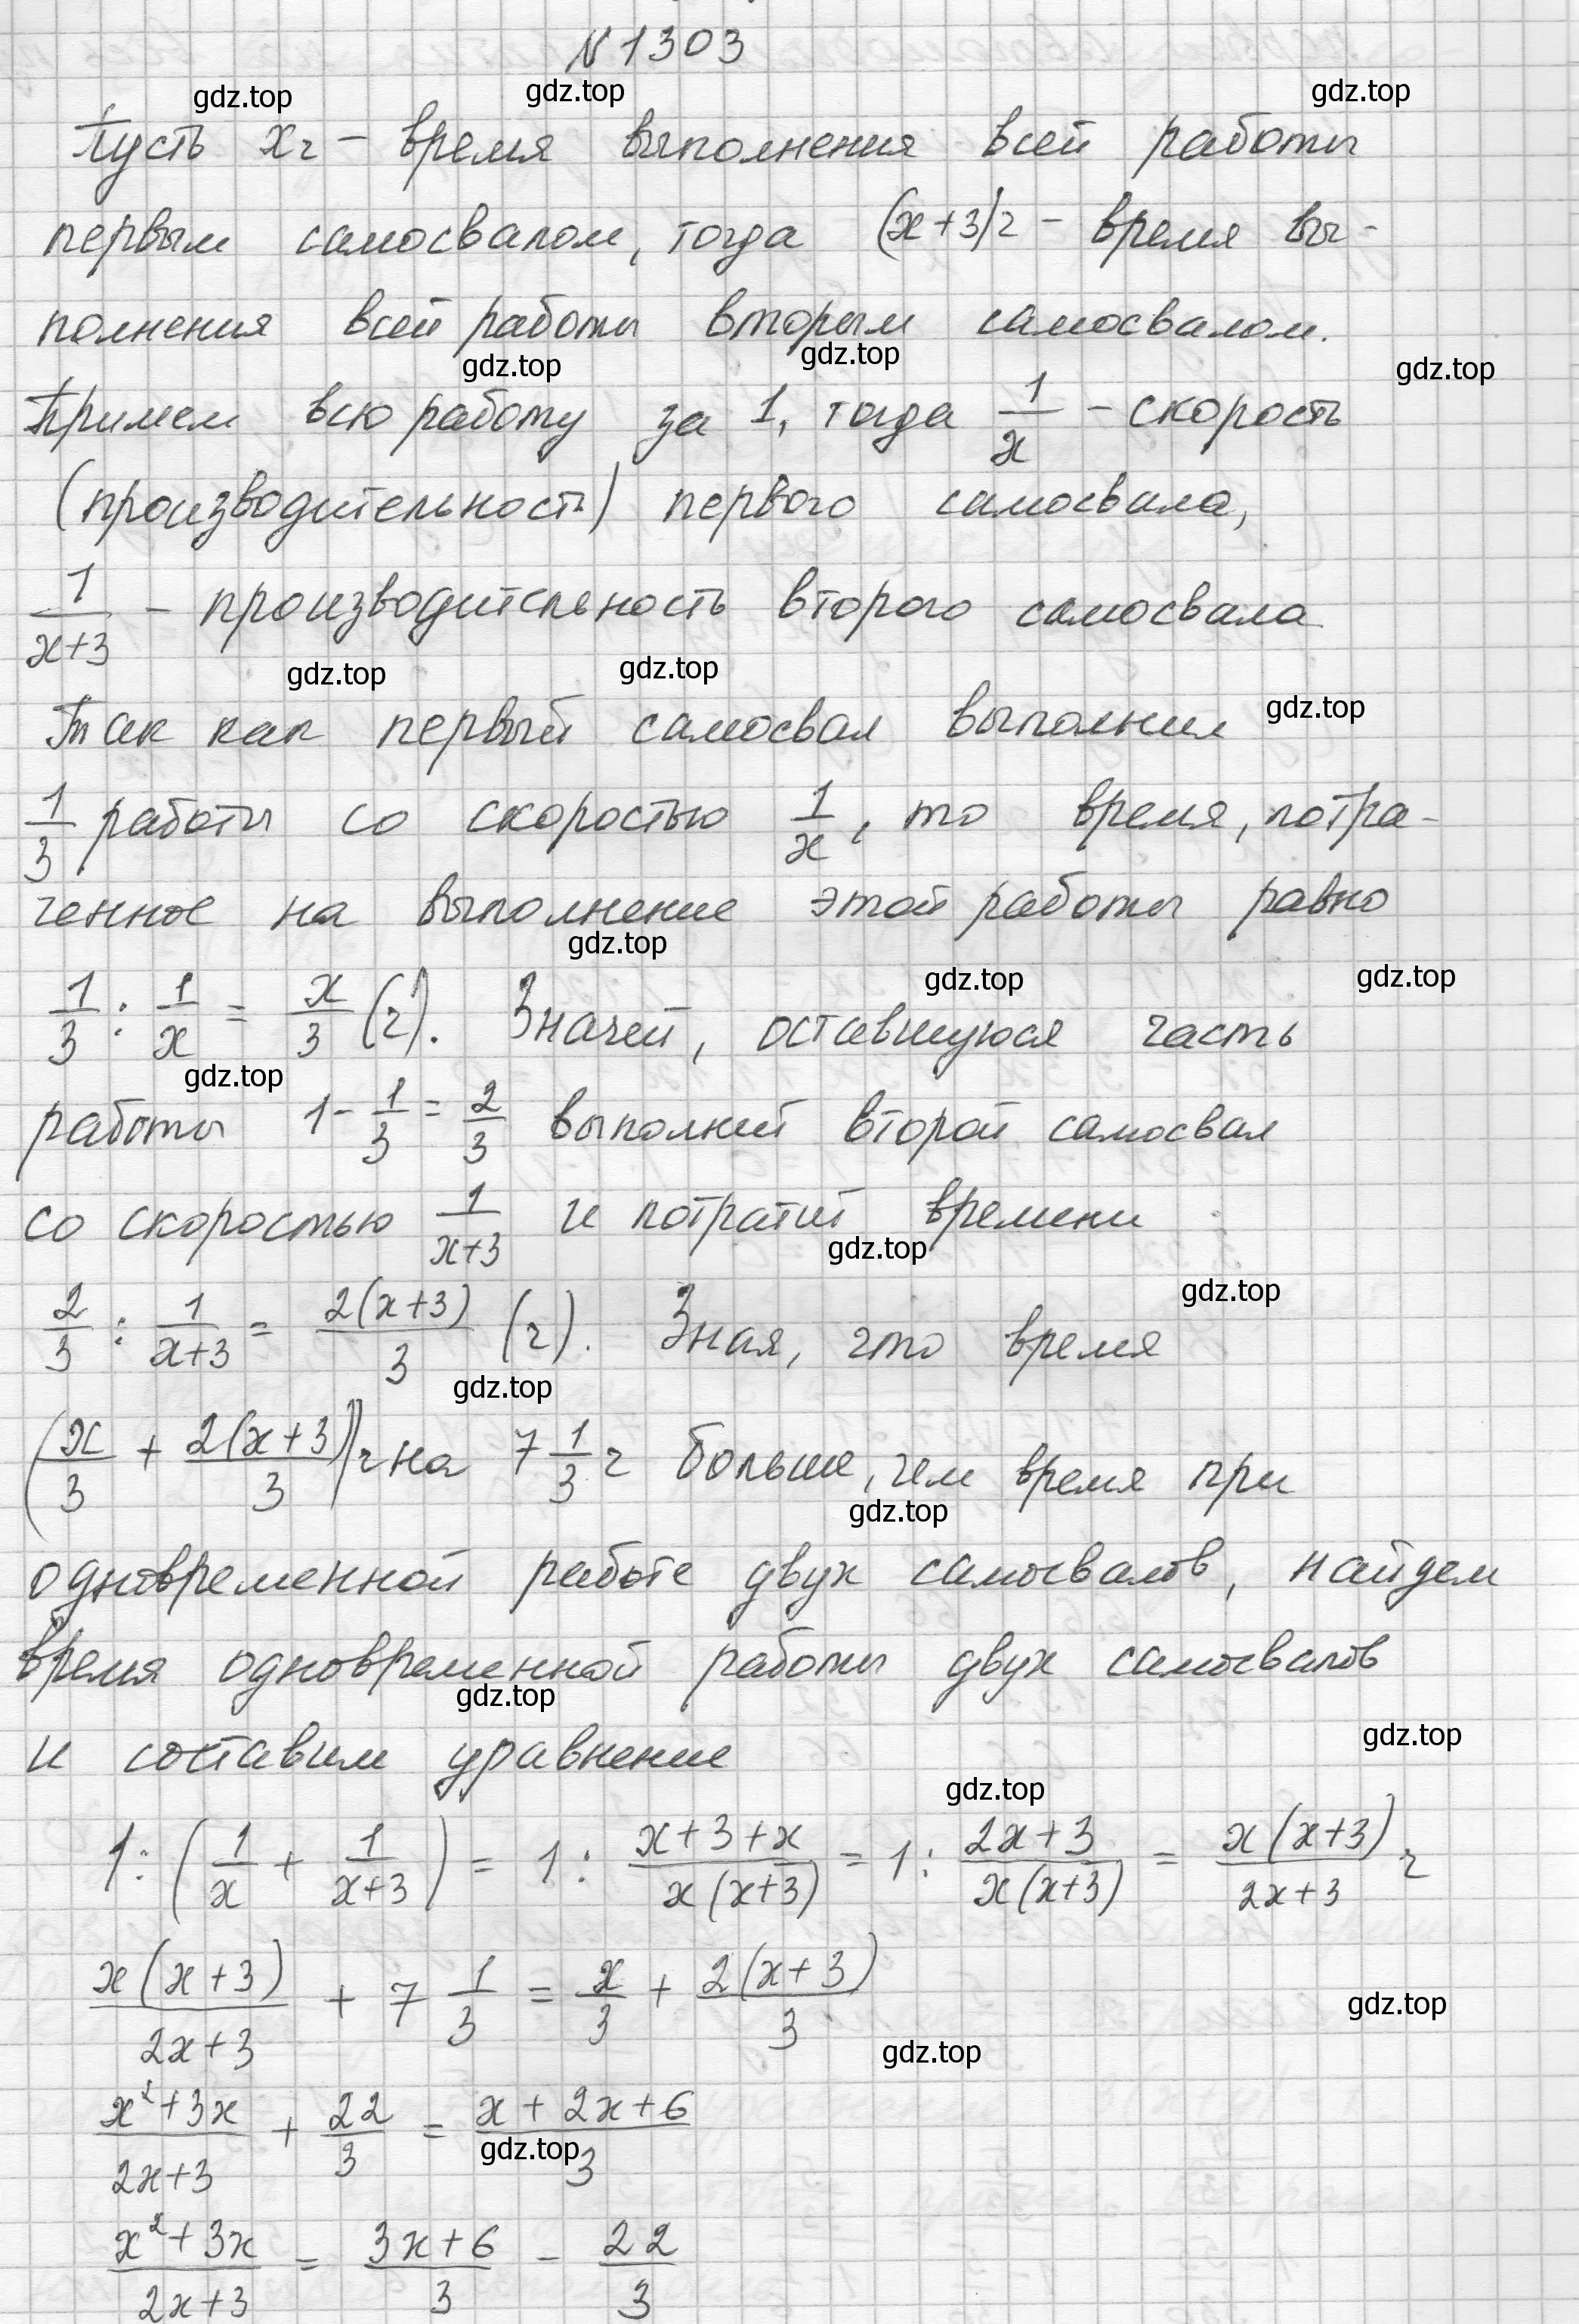 N 1303
gdz.top gdz.top gdz.top
Пусть x ч – время выполнения всей работы
первым самосвалом, тогда (x+3) ч – время вы-
полнения всей работы вторым самосвалом.
gdz.top gdz.top gdz.top
Примем всю работу за 1, тогда 1/x – скорость
(производительность) первого самосвала,
1/(x+3) – производительность второго самосвала
gdz.top gdz.top gdz.top
Так как первый самосвал выполнил
1/3 работы со скоростью 1/x, то время, потра-
ченное на выполнение этой работы равно
gdz.top gdz.top gdz.top
1/3 : 1/x = x/3 (ч). Значит, оставшуюся часть
gdz.top
работы 1 - 1/3 = 2/3 выполнит второй самосвал
со скоростью 1/(x+3) и потратит времени
gdz.top gdz.top
2/3 : 1/(x+3) = 2(x+3)/3 (ч). Зная, что время
gdz.top
(x/3 + 2(x+3)/3) ч на 7 1/3 ч больше, чем время при
gdz.top
одновременной работе двух самосвалов, найдем
время одновременной работы двух самосвалов
gdz.top gdz.top
и составим уравнение
gdz.top
1 : (1/x + 1/(x+3)) = 1 : (x+3+x)/(x(x+3)) = 1 : (2x+3)/(x(x+3)) = x(x+3)/(2x+3) ч
x(x+3)/(2x+3) + 7 1/3 = x/3 + 2(x+3)/3
gdz.top gdz.top
(x²+3x)/(2x+3) + 22/3 = (x+2x+6)/3
gdz.top
(x²+3x)/(2x+3) = (3x+6)/3 - 22/3